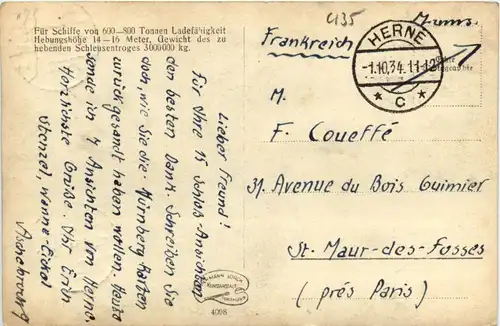 Für Schiffe von 600—800 Tonnen Ladefähigkeit
Hebungshöhe 14—16 Meter, Gewicht des zu
hebenden Schleusentroges 3 000 000 kg.
Lieber Freund!
Für Ihre 15 Schloß-Ansichten
den besten Dank. Schreiben Sie
doch, wie Sie die Nürnberg Karten
zurückgesandt haben wollen. Heute
sende ich 4 Ansichten von Herne.
Herzlichste Grüße. Ihr Erwin
Stenzel, Wanne-Eickel
4098
4135
M.ums.
Frankreich
HERNE
-1.10.34.11-12
* C *
M.
F. Coueffé
31. Avenue du Bois Guimier
St. Maur-des-Fosses
(prés Paris)